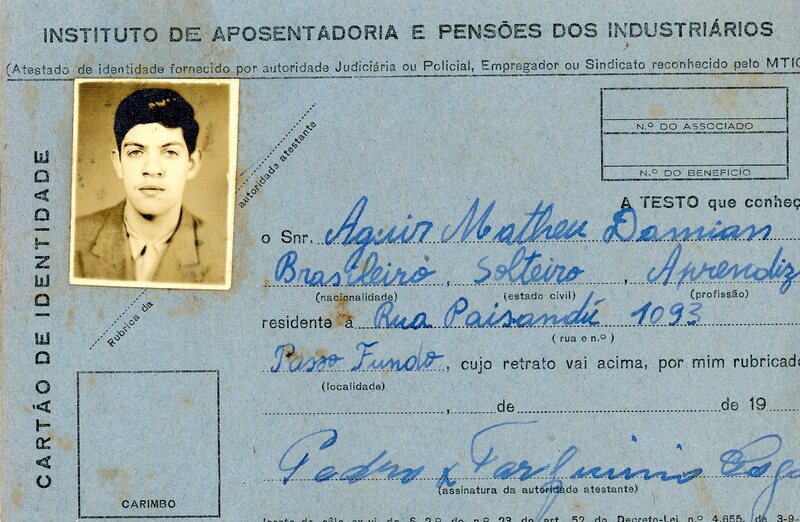 INSTITUTO DE APOSENTADORIA E PENSÕES DOS INDUSTRIÁRIOS
(Atestado de identidade fornecido por autoridade Judiciária ou Policial, Empregador ou Sindicato reconhecido pelo MTIC
CARTÃO DE IDENTIDADE
Rubrica da
autoridade atestante
N.º DO ASSOCIADO
N.º DO BENEFICIO
A TESTO que conheç
o Snr. Aguir Matheu Damian
Brasileiro, Solteiro, Aprendiz
(nacionalidade) (estado civil) (profissão)
residente á Rua Paisandú 1093
(rua e n.º)
Passo Fundo, cujo retrato vai acima, por mim rubricado
(localidade)
, de de 19
Pedro Tarquinio
(assinatura da autoridade atestante)
CARIMBO
n.º 23 do art. 52 do Decreto-Lei n.º 4.655, de 3-9-